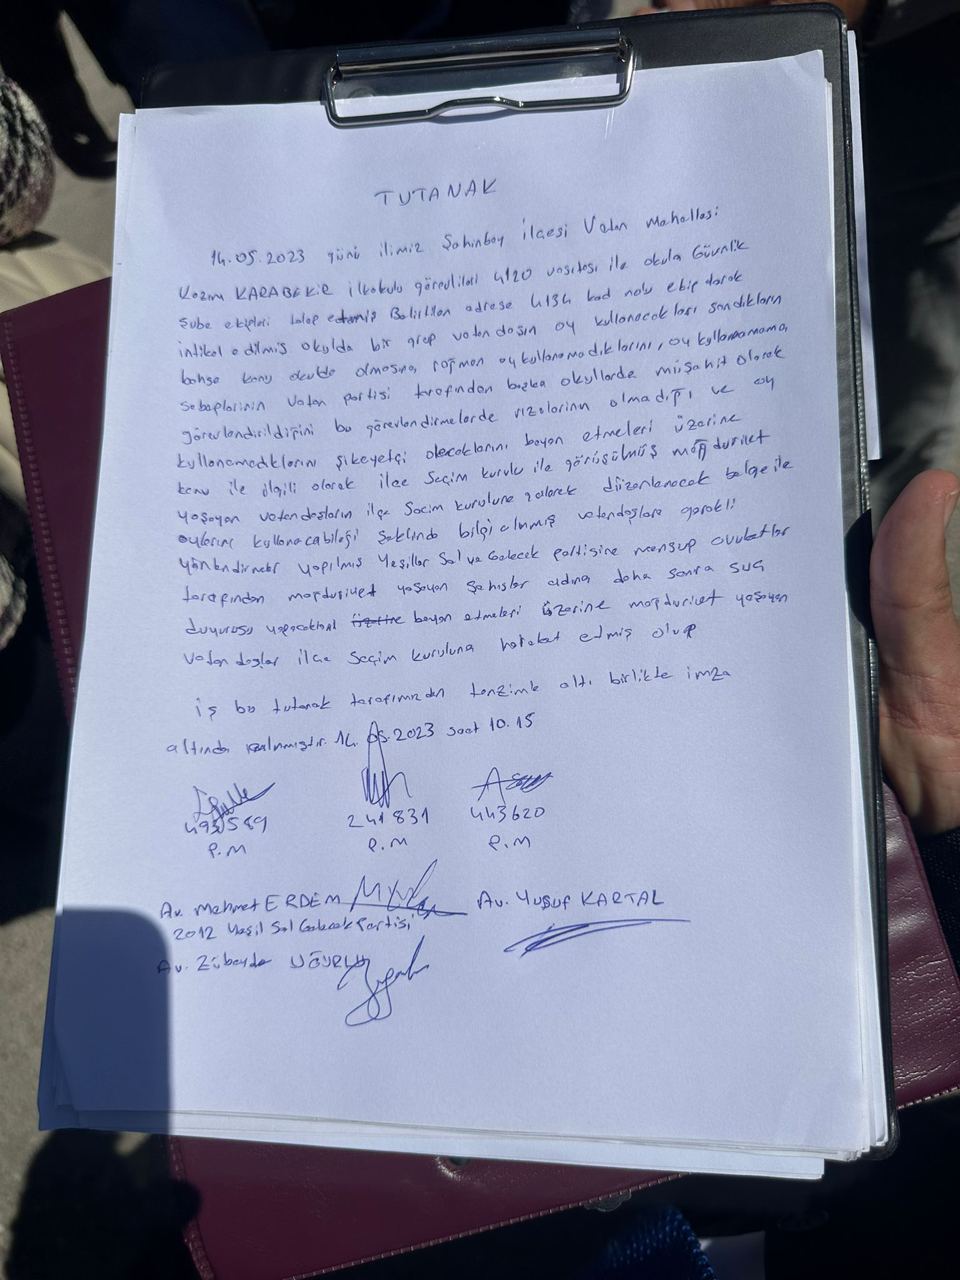 TUTANAK
14.05.2023 günü ilimiz Şahinbey ilçesi Vatan Mahallesi
Kazım KARABEKİR ilkokulu görevlileri 4120 vasıtası ile okula Güvenlik
Şube ekipleri talep etmiş Belirtilen adrese 4134 kod nolu ekip olarak
intikal edilmiş okulda bir grup vatandaşın oy kullanacakları sandıkların
bahse konu okulda olmasına rağmen oy kullanamadıklarını, oy kullanamama
sebeplerinin Vatan partisi tarafından başka okullarda müşahit olarak
görevlendirildiğini bu görevlendirmelerde rızalarının olmadığı ve oy
kullanamadıklarını şikayetçi olacaklarını beyan etmeleri üzerine
konu ile ilgili olarak ilçe Seçim kurulu ile görüşülmüş mağduriyet
yaşayan vatandaşların ilçe Seçim kuruluna gelerek düzenlenecek belge ile
oylarını kullanacabileği şeklinde bilgi alınmış vatandaşlara gerekli
yönlendirmeler yapılmış Yeşiller Sol ve Gelecek partisine mensup avukatlar
tarafından mağduriyet yaşayan şahıslar adına daha sonra suç
duyurusu yapacakları üzerine beyan etmeleri üzerine mağduriyet yaşayan
vatandaşlar ilçe Seçim kuruluna hareket etmiş olup
iş bu tutanak tarafımızdan tanzimle altı birlikte imza
altında alınmıştır. 14.05.2023 saat 10.15
241831 443620
P.M P.M P.M
Av. Mehmet ERDEM Av. Yusuf KARTAL
2012 Yeşil Sol Gelecek Partisi
Av. Zübeyde UĞURLU